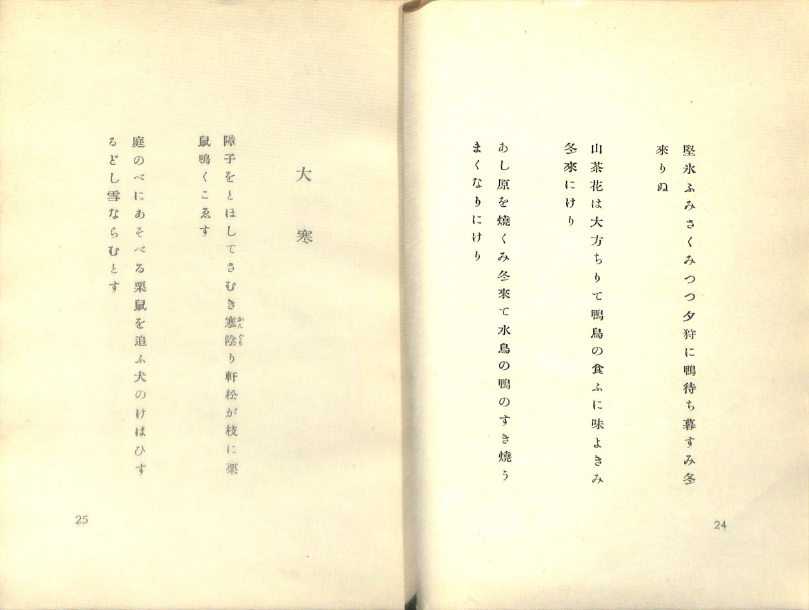 堅氷ふみさくみつつ夕狩に鴨待ち暮すみ冬
來りぬ
山茶花は大方ちりて鴨鳥の食ふに味よきみ
冬來にけり
あし原を燒くみ冬來て水鳥の鴨のすき燒う
まくなりにけり
24
大寒
障子をとほしてさむき寒陰り軒松が枝に栗
かんぐも
鼠鳴くこゑす
庭のべにあそべる栗鼠を追ふ犬のけはひす
るどし雪ならむとす
25